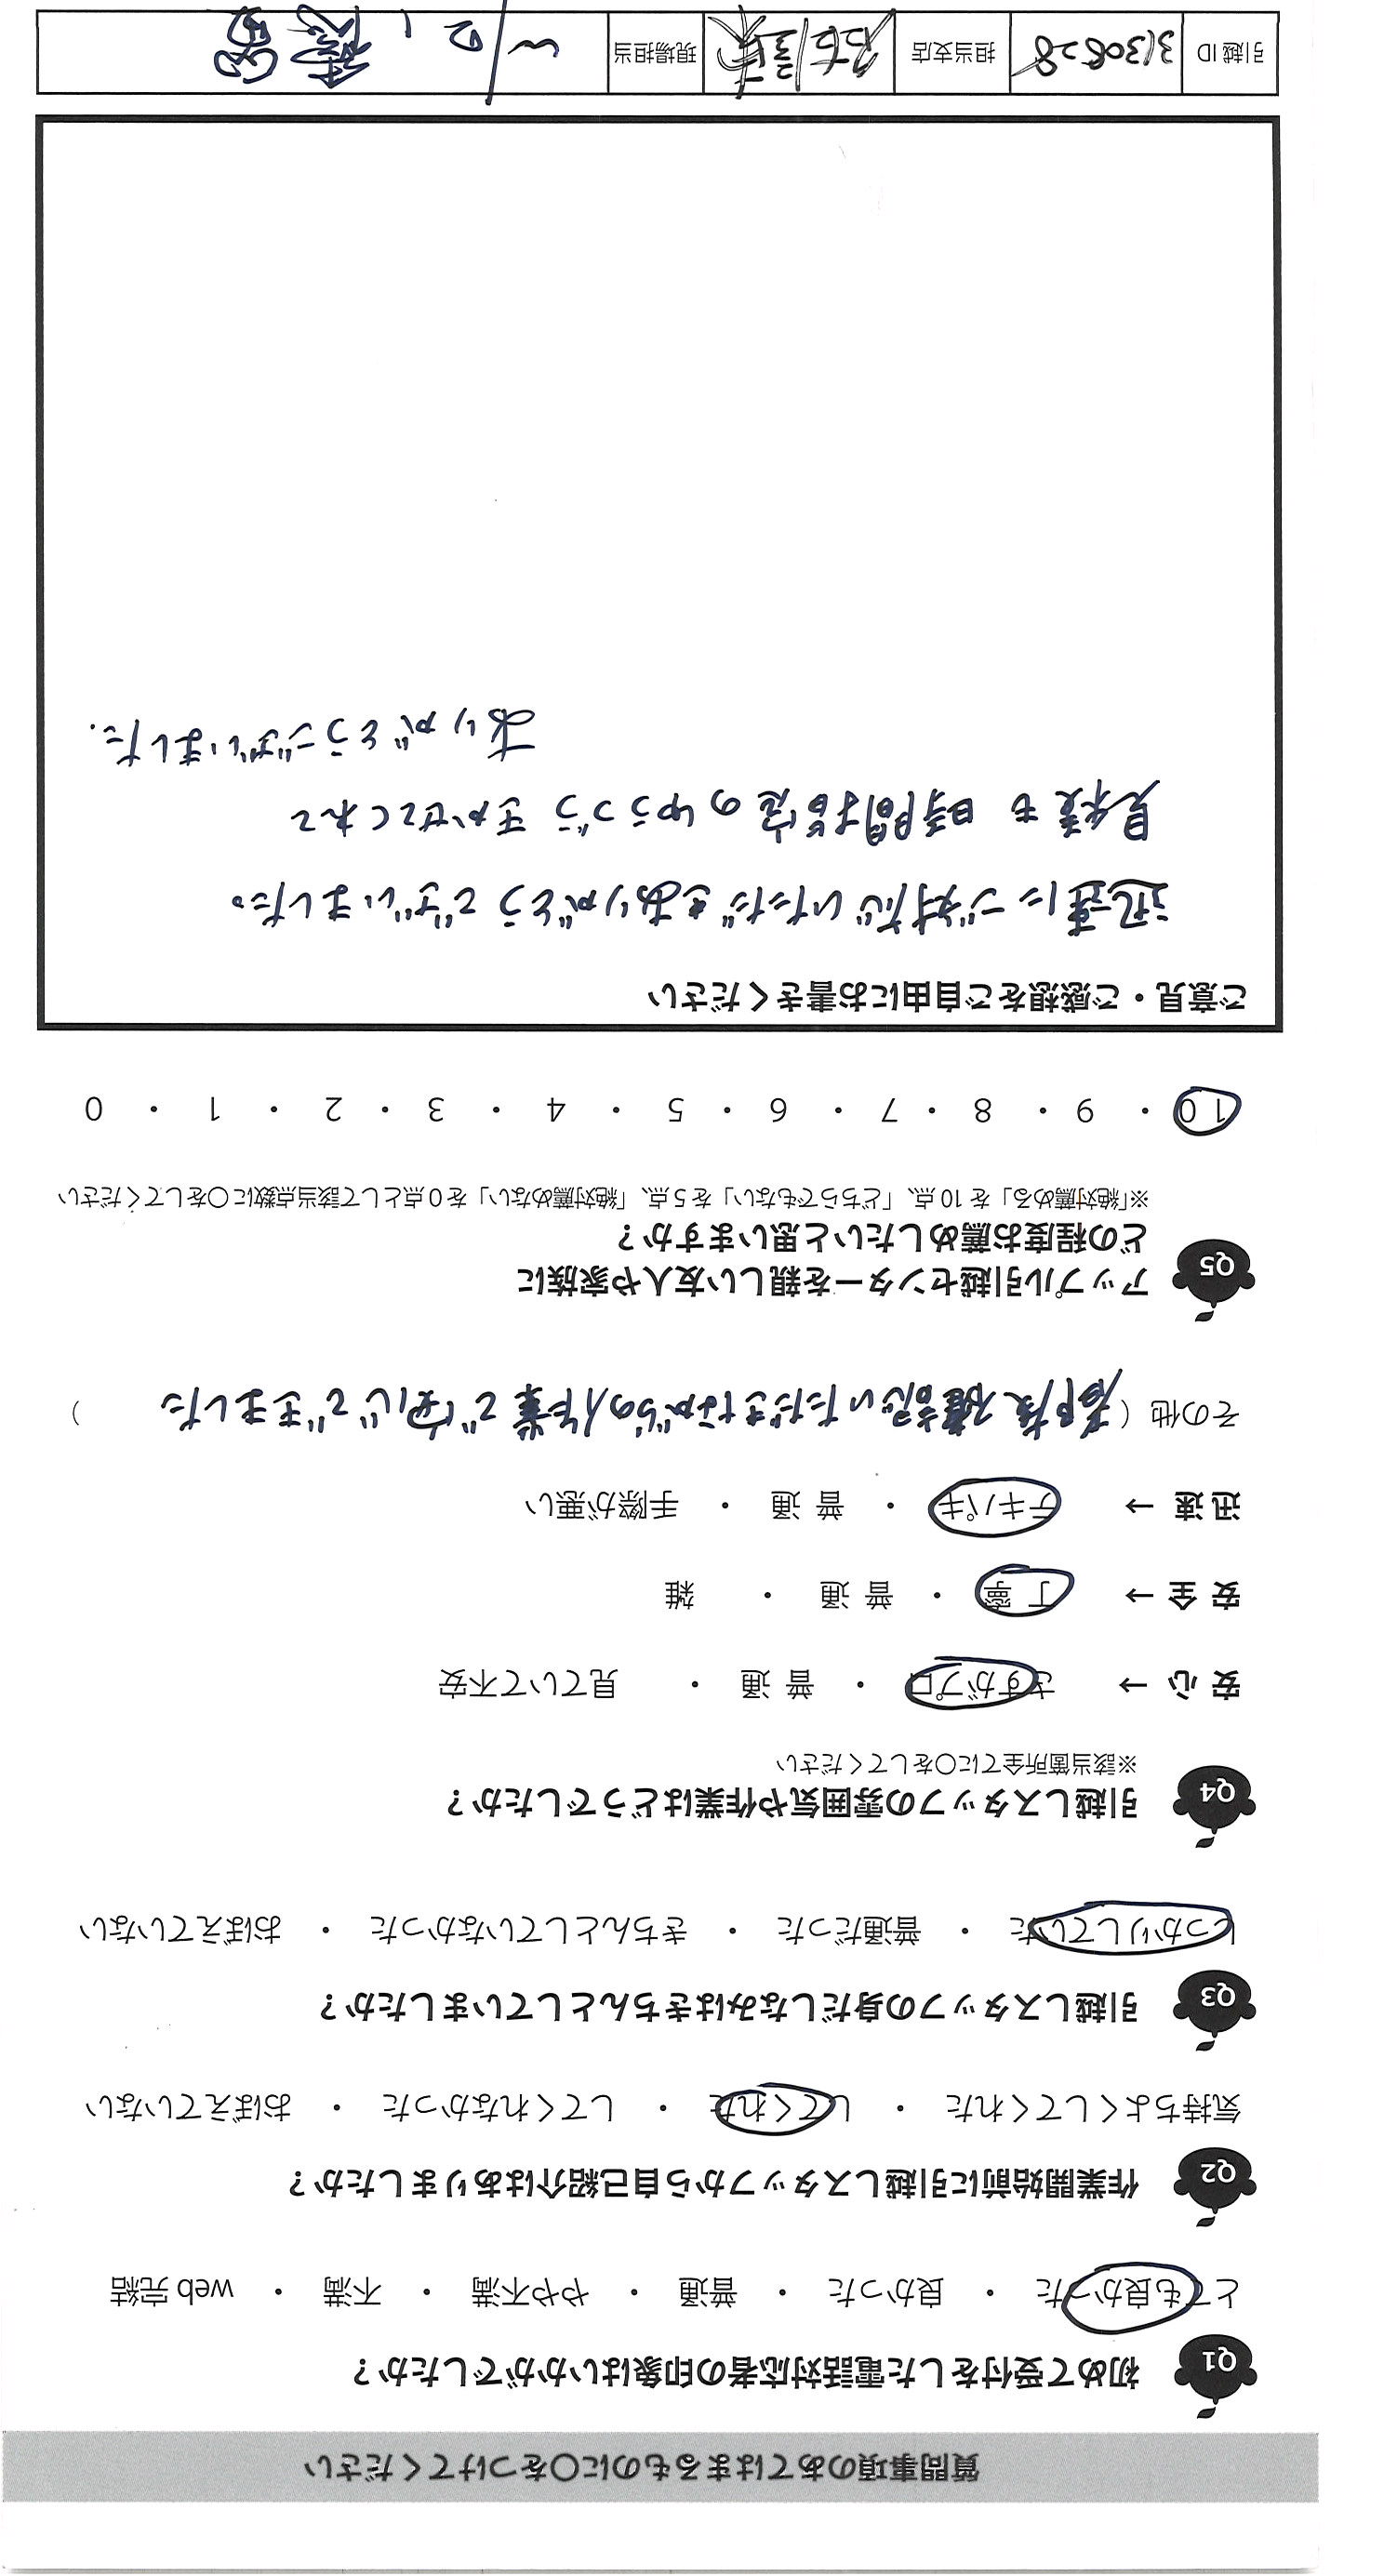 質問事項のあてはまるものに〇をつけてください
Q1 初めて受付をした電話対応者の印象はいかがでしたか？
とても良かった ・ 良かった ・ 普通 ・ やや不満 ・ 不満 ・ web 完結
Q2 作業開始前に引越しスタッフから自己紹介はありましたか？
気持ちよくしてくれた ・ してくれた ・ してくれなかった ・ おぼえていない
Q3 引越しスタッフの身だしなみはきちんとしていましたか？
しっかりしていた ・ 普通だった ・ きちんとしていなかった ・ おぼえていない
Q4 引越しスタッフの雰囲気や作業はどうでしたか？
※該当箇所全てに〇をしてください
安 心 → さすがプロ ・ 普 通 ・ 見ていて不安
安 全 → 丁 寧 ・ 普 通 ・ 雑
迅 速 → テキパキ ・ 普 通 ・ 手際が悪い
その他（都度確認いただきながらの作業で安心できました ）
Q5 アップル引越センターを親しい友人や家族に
どの程度お薦めしたいと思いますか？
※「絶対薦める」を 10 点、「どちらでもない」を 5 点、「絶対薦めない」を 0 点として該当点数に〇をしてください
10 ・ 9 ・ 8 ・ 7 ・ 6 ・ 5 ・ 4 ・ 3 ・ 2 ・ 1 ・ 0
ご意見・ご感想をご自由にお書きください
迅速にご対応いただきありがとうございました。
見積も時間指定のゆうづうきかせてくれて
ありがとうございました.
引越 ID 3130828 担当支店 現場担当